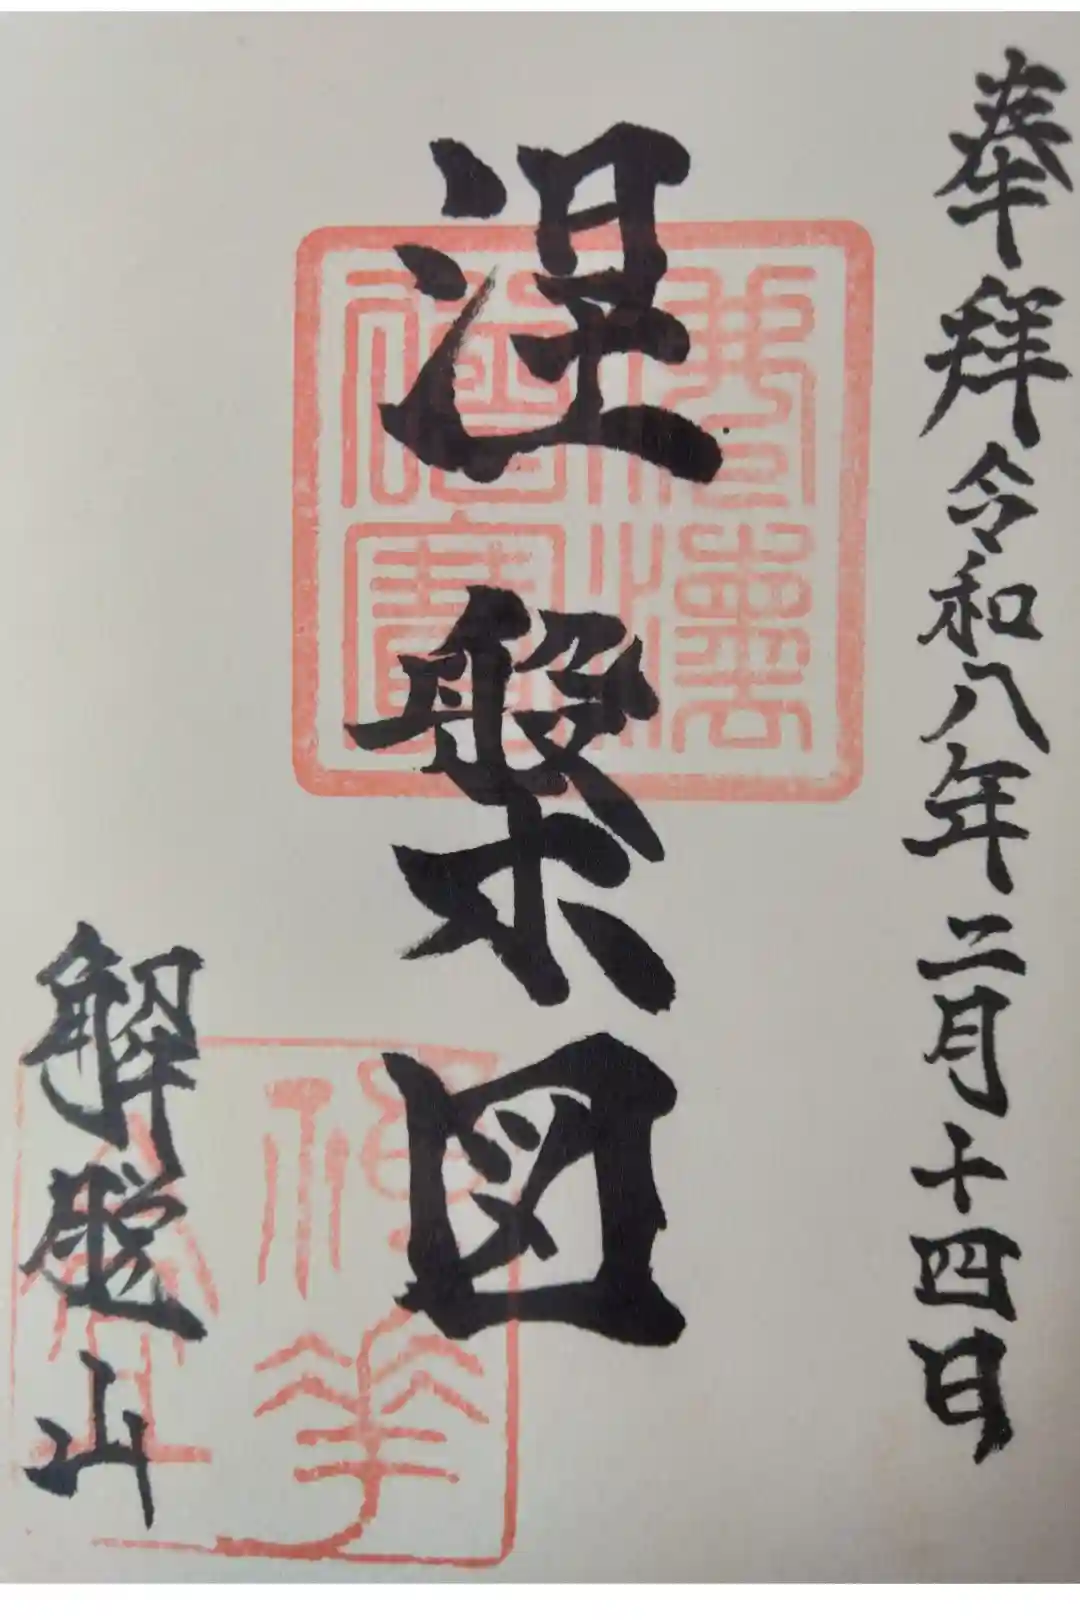 奉拝 令和八年二月十四日
涅槃図
佛法僧寶
解脱山